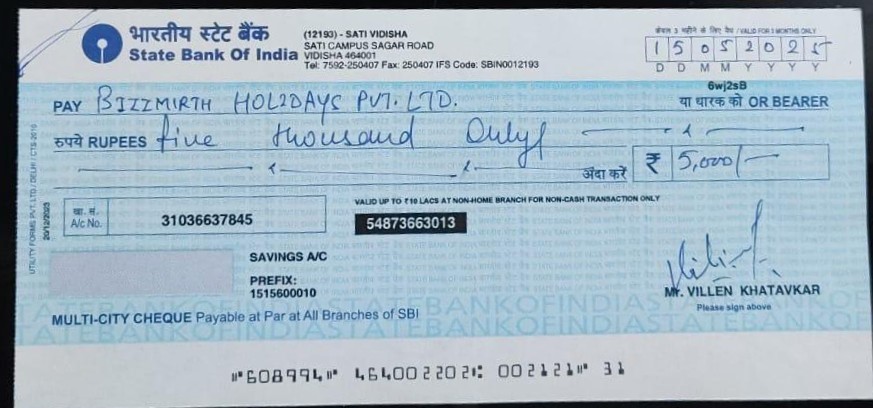 भारतीय स्टेट बैंक
State Bank Of India
(12193) - SATI VIDISHA
SATI CAMPUS SAGAR ROAD
VIDISHA 464001
Tel: 7592-250407 Fax: 250407 IFS Code: SBIN0012193
केवल 3 महीने के लिए वैध / VALID FOR 3 MONTHS ONLY
15052025
D D M M Y Y Y Y
6wj2sB
PAY BIZZMIRTH HOLIDAYS PVT. LTD. या धारक को OR BEARER
रुपये RUPEES five thousand Only
अदा करें ₹ 5,000/-
VALID UP TO ₹10 LACS AT NON-HOME BRANCH FOR NON-CASH TRANSACTION ONLY
खा. सं.
A/c No. 31036637845
54873663013
SAVINGS A/C
PREFIX:
1515600010
Mr. VILLEN KHATAVKAR
Please sign above
MULTI-CITY CHEQUE Payable at Par at All Branches of SBI
STATEBANKOFINDIASTATEBANKOFINDIA
UTILITY FORMS PVT. LTD / DELHI / CTS-2010
20/12/2023
⑈608994⑈ 464002202⑆ 002121⑈ 31